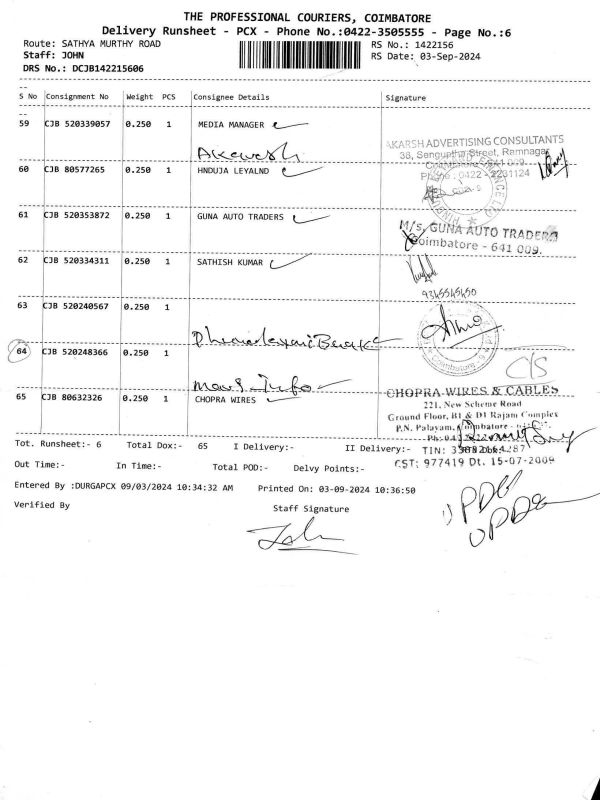 THE PROFESSIONAL COURIERS, COIMBATORE
Delivery Runsheet - PCX - Phone No.:0422-3505555 - Page No.:6
Route: SATHYA MURTHY ROAD
RS No.: 1422156
Staff: JOHN
RS Date: 03-Sep-2024
DRS No.: DCJB142215606
S No Consignment No Weight PCS Consignee Details Signature
59 CJB 520339057 0.250 1 MEDIA MANAGER
AKARSH ADVERTISING CONSULTANTS
38, Sengupta Street, Ramnagar
Coimbatore - 641 009.
Akarsh
60 CJB 80577265 0.250 1 HNDUJA LEYALND
Phone : 0422 - 2231124
61 CJB 520353872 0.250 1 GUNA AUTO TRADERS
M/s. GUNA AUTO TRADERS
Coimbatore - 641 009.
62 CJB 520334311 0.250 1 SATHISH KUMAR
63 CJB 520240567 0.250 1
Coimbatore
64 CJB 520248366 0.250 1
C/S
Info
65 CJB 80632326 0.250 1 CHOPRA WIRES
CHOPRA WIRES & CABLES
221, New Scheme Road
Ground Floor, B1 & D1 Rajam Complex
P.N. Palayam, Coimbatore -
Tot. Runsheet:- 6 Total Dox:- 65 I Delivery:- II Delivery:- TIN:
CST: 977419 Dt. 15-07-2009
Out Time:- In Time:- Total POD:- Delvy Points:-
Entered By :DURGAPCX 09/03/2024 10:34:32 AM Printed On: 03-09-2024 10:36:50
Verified By Staff Signature
John